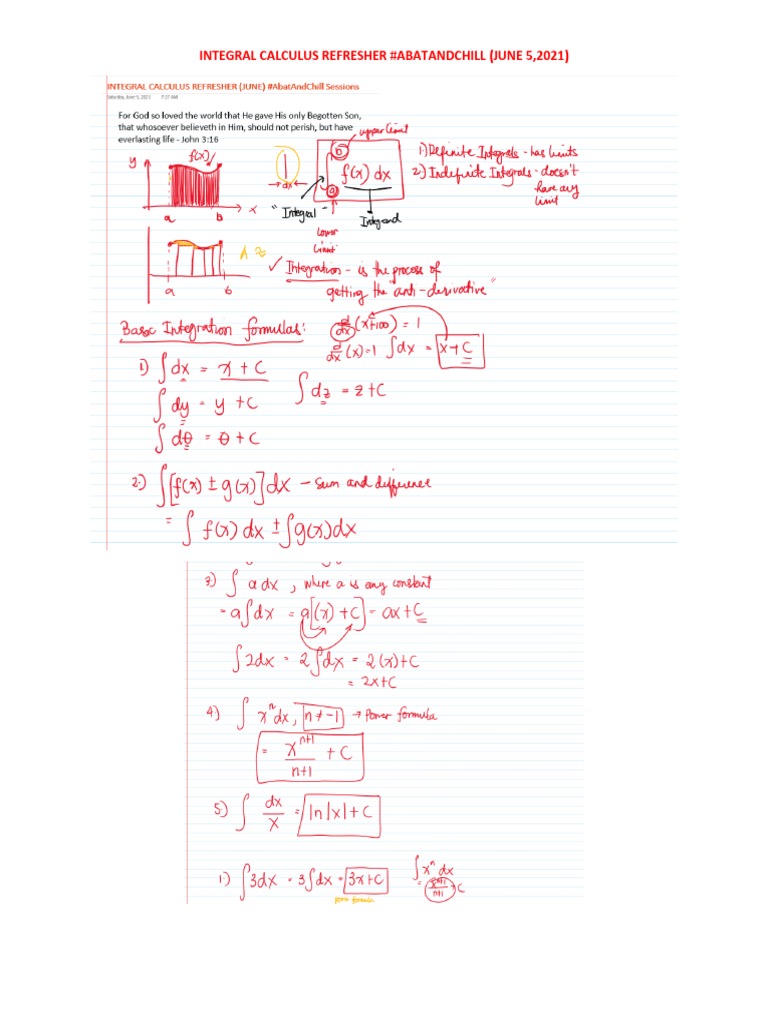 INTEGRAL CALCULUS REFRESHER #ABATANDCHILL (JUNE 5,2021)
INTEGRAL CALCULUS REFRESHER (JUNE) #AbatAndChill Sessions
Saturday, June 5, 2021 7:27 AM
For God so loved the world that He gave His only Begotten Son,
that whosoever believeth in Him, should not perish, but have
everlasting life - John 3:16
y f(x)
a b x
dx
upper limit
∫ b a f(x) dx
"Integral"
Integrand
lower
limit
1) Definite Integrals - has limits
2) Indefinite Integrals - doesn't
have any
limit
A ≈
a b
✓ Integration - is the process of
getting the "anti-derivative"
Basic Integration formulas:
d/dx (x+100) = 1
d/dx (x) = 1 ∫dx = x + C
1) ∫dx = x + C
∫dz = z + C
∫dy = y + C
∫dθ = θ + C
2.) ∫[f(x) ± g(x)]dx - sum and difference
= ∫f(x) dx ± ∫g(x)dx
3) ∫ a dx, where a is any constant
= a∫dx = a[(x) + C] = ax + C
∫2dx = 2∫dx = 2(x) + C
= 2x + C
4) ∫ xⁿ dx, n ≠ -1 → Power formula
= xⁿ⁺¹/n+1 + C
5) ∫ dx/x = ln|x| + C
1.) ∫3dx = 3∫dx = 3x + C
∫xⁿ dx
= xⁿ⁺¹/n+1 + C